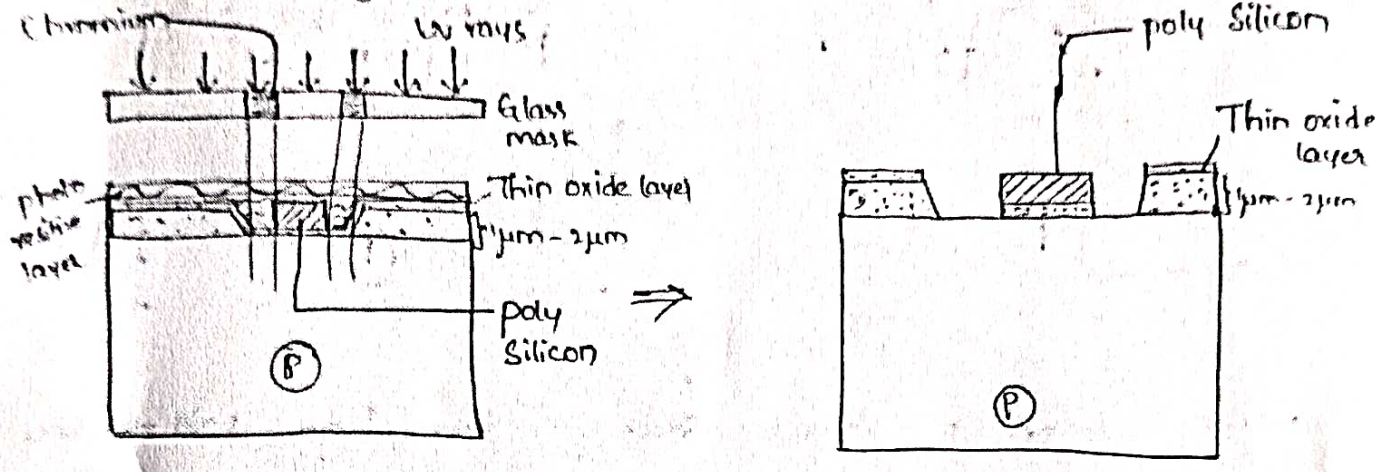 Chromium
UV rays
Glass
mask
photo
resitive
layer
Thin oxide layer
1μm - 2μm
poly
Silicon
P
⇒
poly Silicon
Thin oxide
layer
1μm - 2μm
P